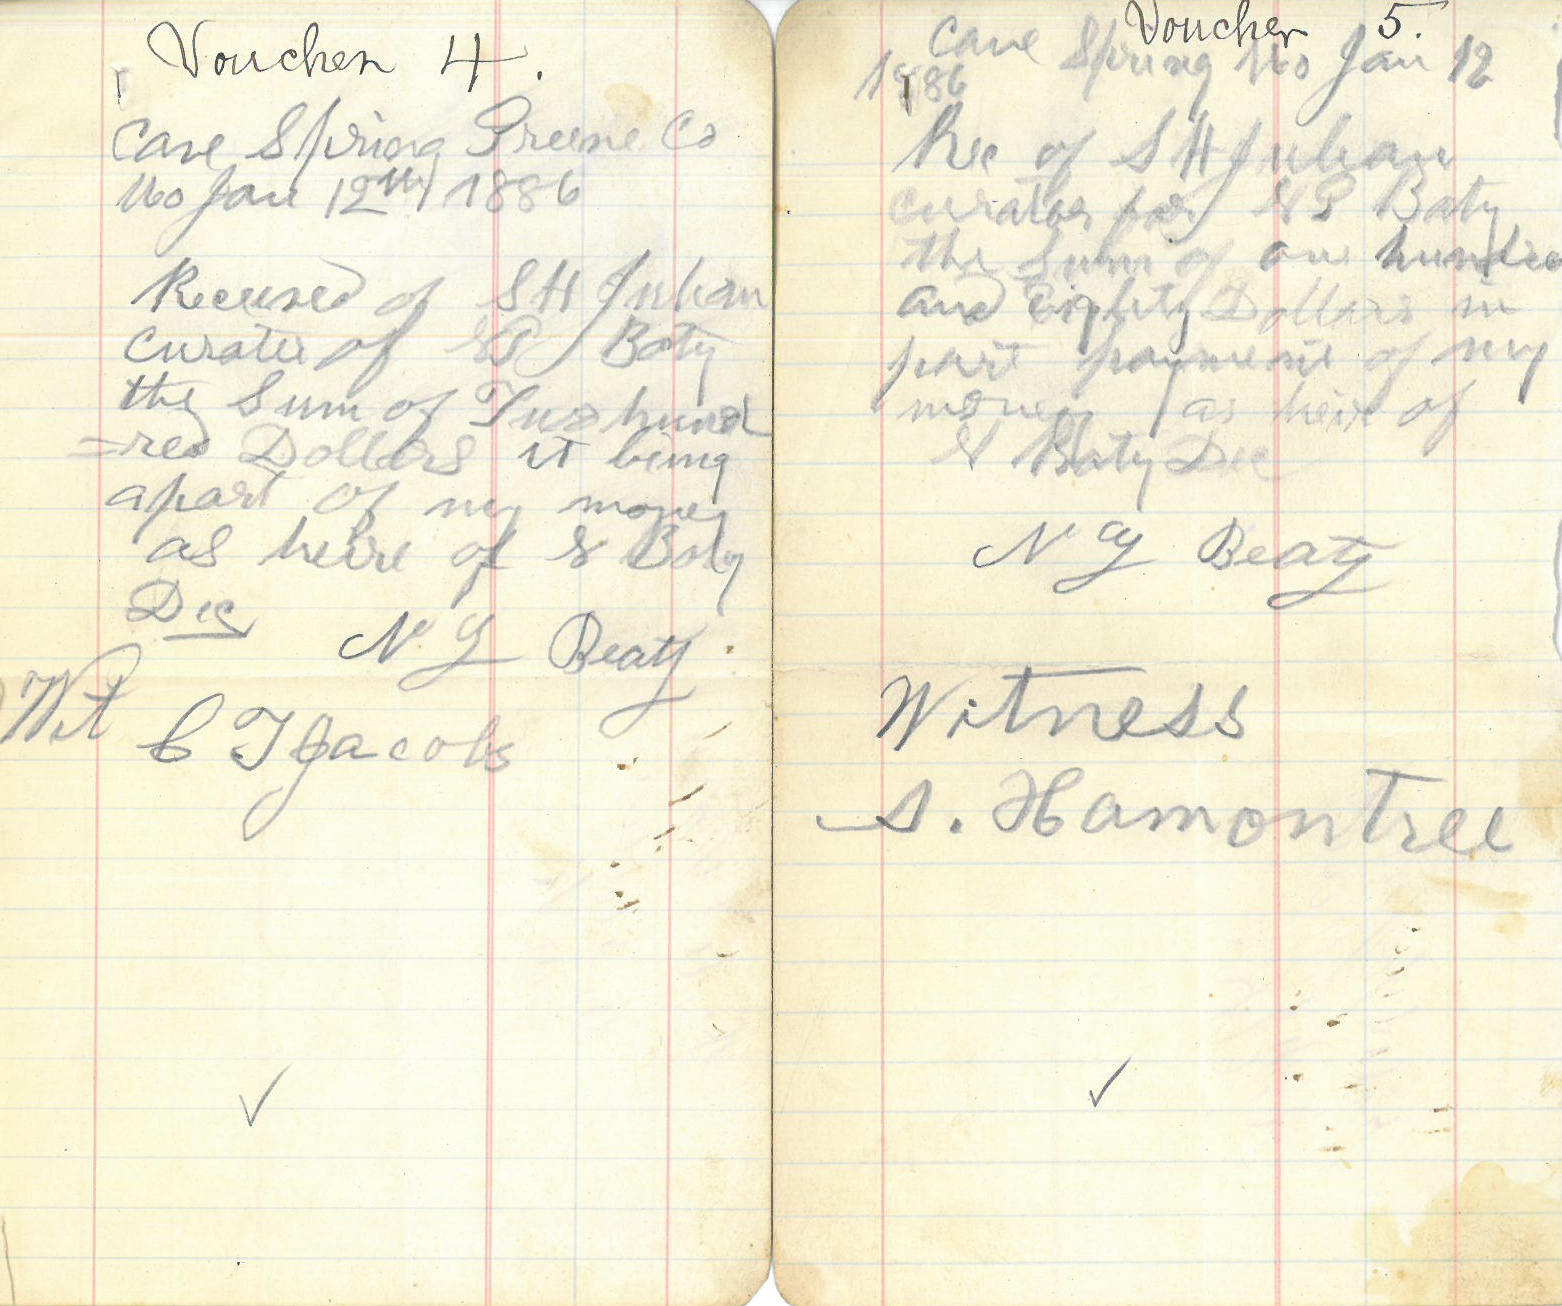 Voucher 4.
Cave Spring Greene Co
Mo Jan 12th 1886
Received of S H Julian
curater of Baty
the Sum of Two hund
=red Dollars it being
apart of my money
as heire of Baty
Dec
N Beaty
Wit
C T Jacobs
Voucher 5.
Cave Spring Mo Jan 12
1886
Rec of S H Julian
curator for Baty
the Sum of one hundred
and Eighty Dollars in
part payment of my
money as heir of
Baty Dec
N Beaty
Witness
S. Hamontree